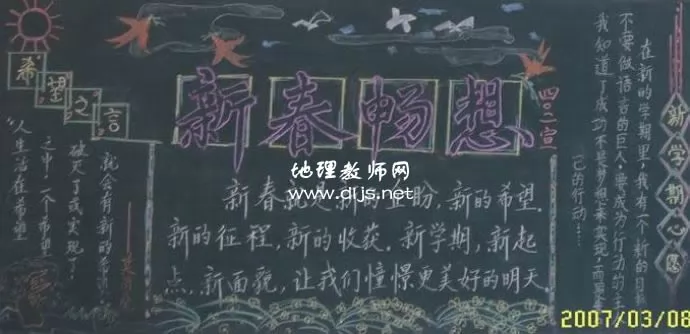 新春畅想
四〇二宣
希望之言
“人生活在希望
之中一个希望
破灭了或实现了
就会有新的希望
地理教师网
www.dljs.net
新春就是新的企盼,新的希望.
新的征程,新的收获.新学期,新起
点,新面貌,让我们憧憬更美好的明天.
新学期心愿
在新的学期里,我有一个新的目
不要做语言的巨人,要成为行动的主
我知道了成功不是梦想来实现,而
的行动……
2007/03/08